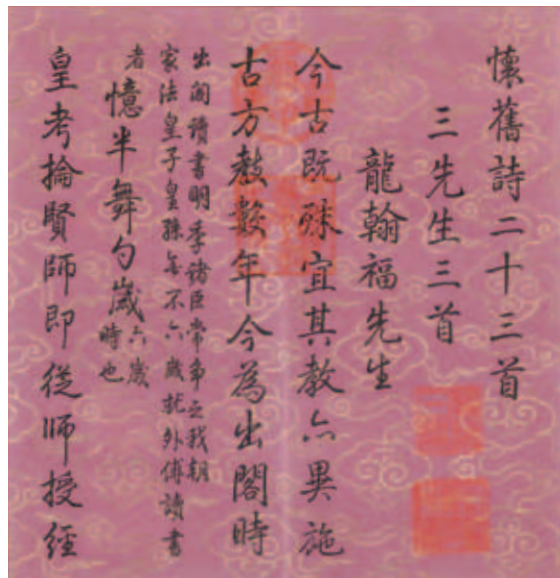 懷舊詩二十三首
三先生三首
龍翰福先生
今古既殊宜其教亦異施
古方教數年今為出閣時
出閣讀書明季諸臣常爭之我朝
家法皇子皇孫無不六歲就外傅讀書
者憶半舞勺歲六歲時也
皇考掄賢師即從師授經